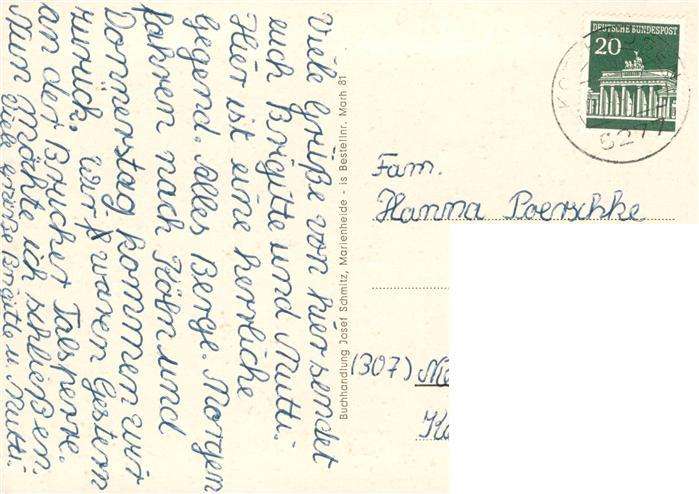 Viele Grüße von hier sendet
euch Brigitte und Mutti.
Hier ist eine herrliche
Gegend. Alles Berge. Morgen
fahren nach Köln und
Donnerstag kommen wir
zurück. Wir waren Gestern
an der Brucher Talsperre.
Nun möchte ich schließen.
Viele Grüße Brigitte u. Mutti.
Buchhandlung Josef Schmitz, Marienheide - is Bestellnr. Marh 81
DEUTSCHE BUNDESPOST
20
5277
Fam.
Hanna Poerschke
(307)